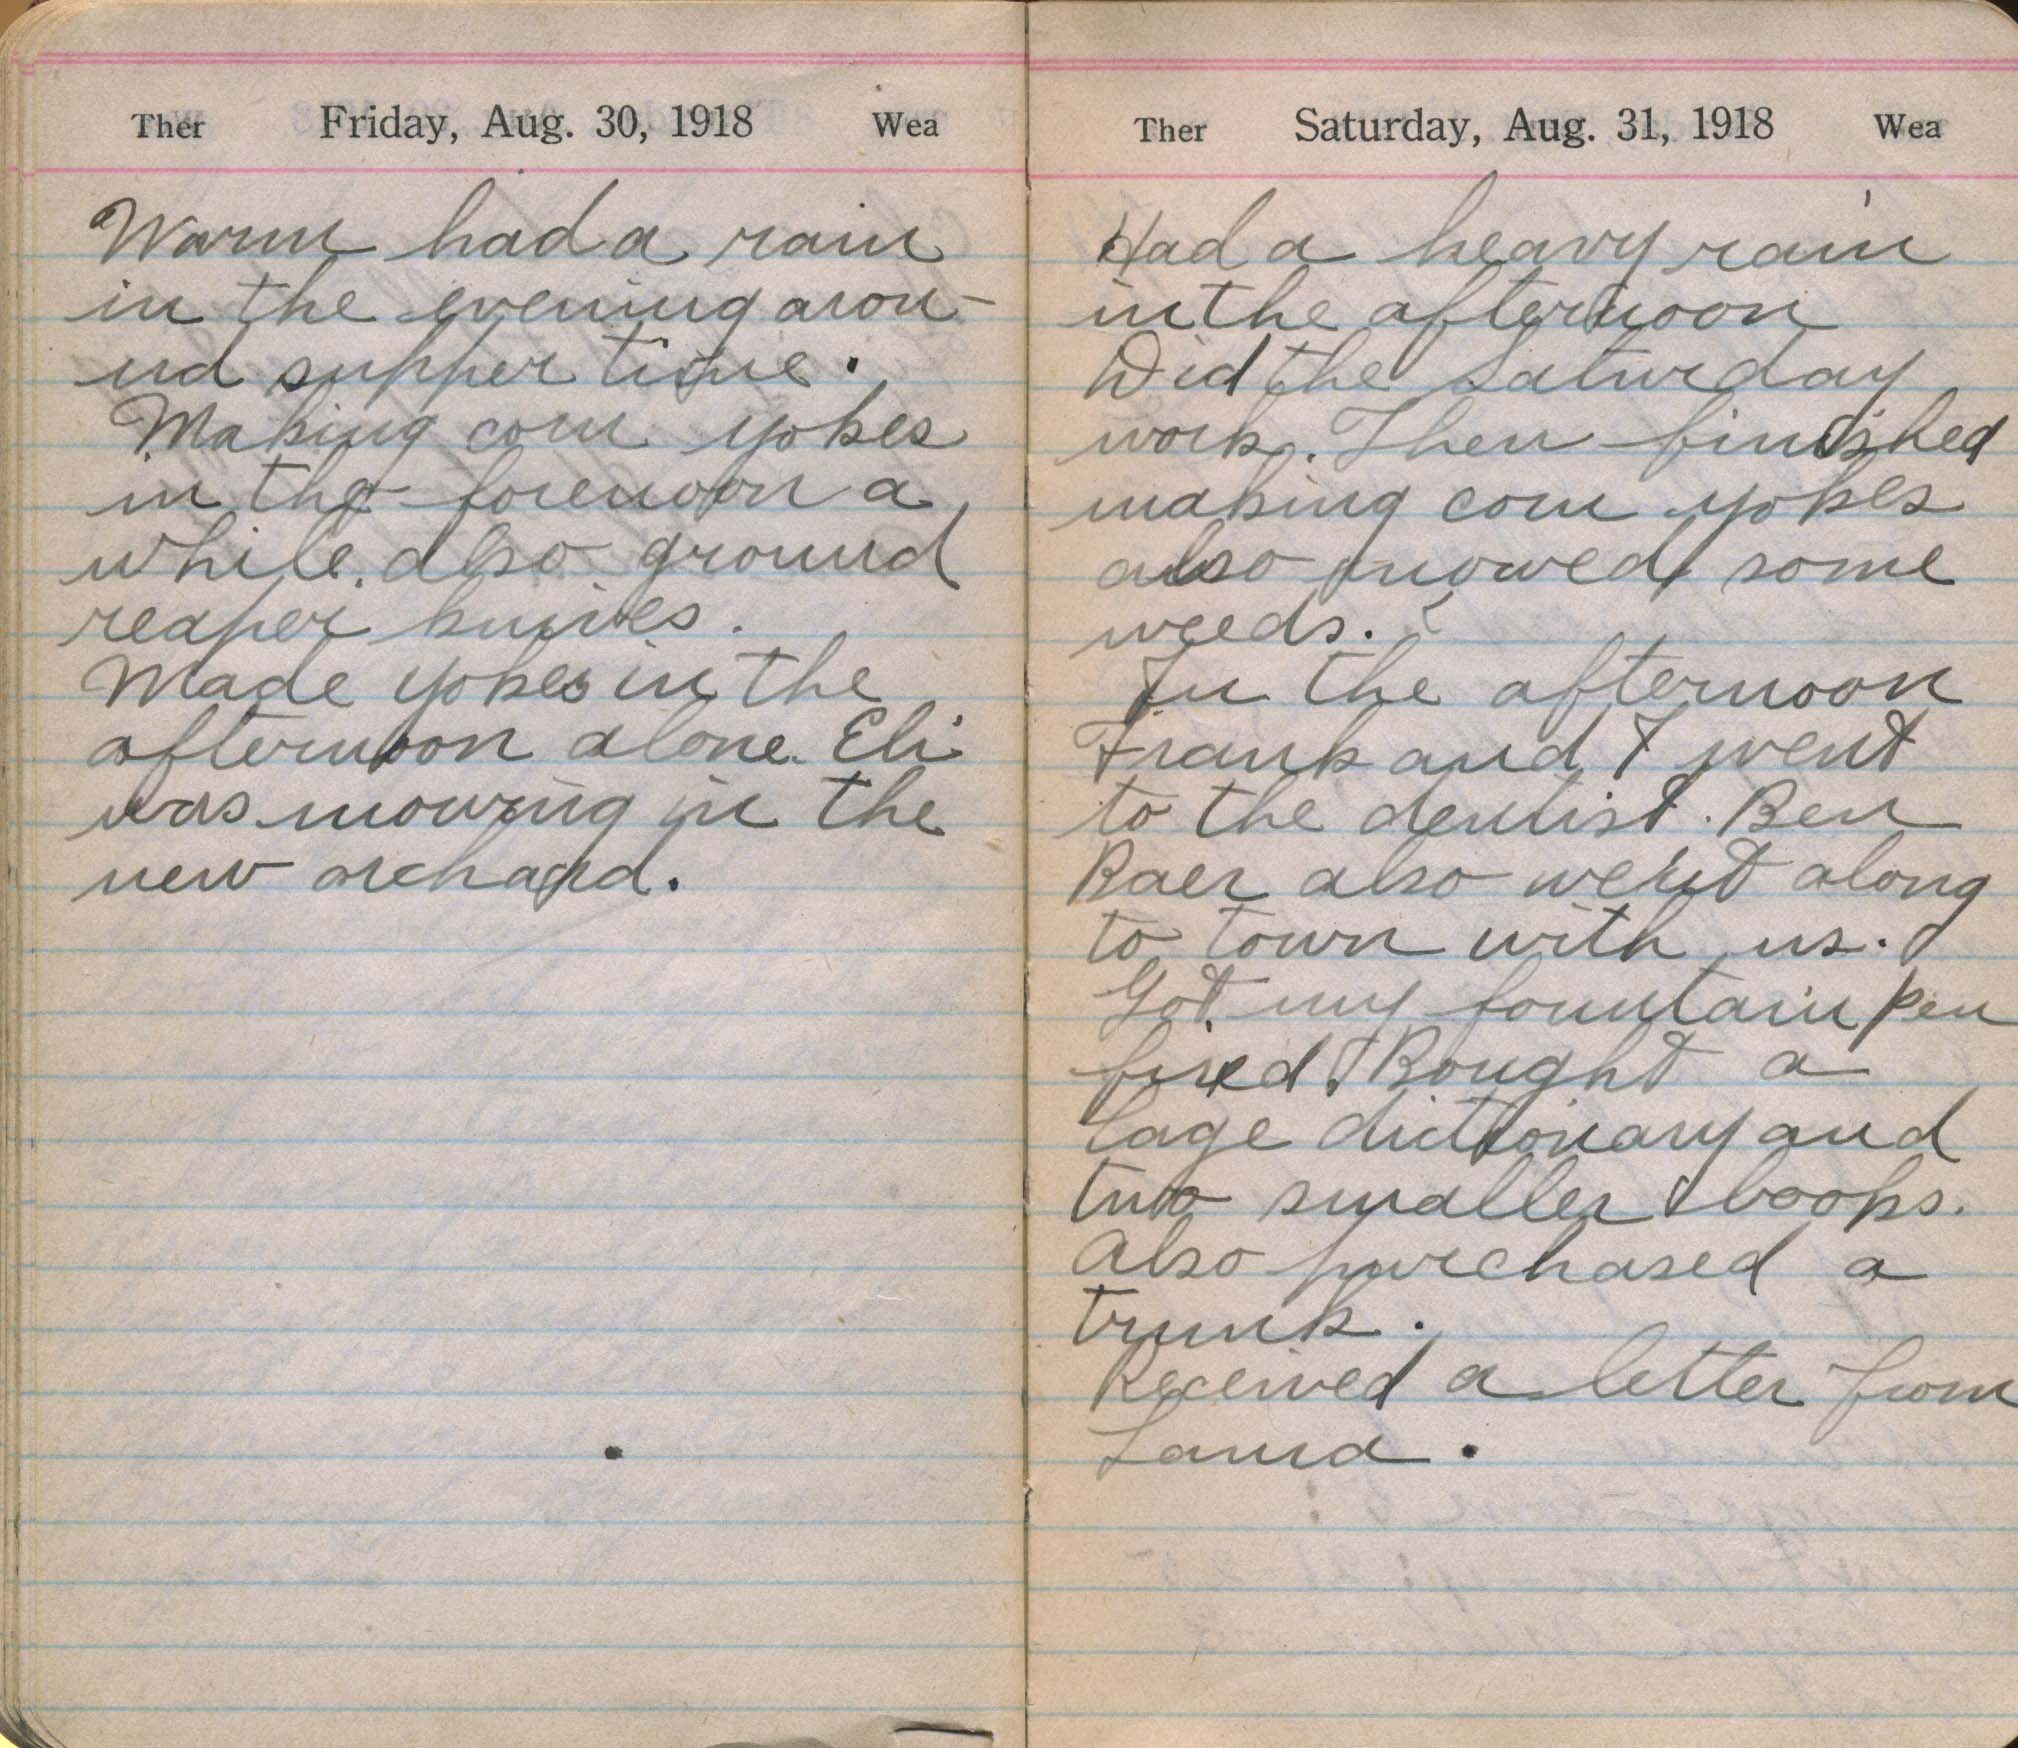 Ther Friday, Aug. 30, 1918 Wea
Warm had a rain
in the evening arou-
nd supper time.
Making corn yokes
in the forenoon a
while. also ground
reaper knives.
Made yokes in the
afternoon alone. Eli
was mowing in the
new orchard.
Ther Saturday, Aug. 31, 1918 Wea
Had a heavy rain
in the afternoon
Did the Saturday
work. Then finished
making corn yokes
also mowed some
weeds.
In the afternoon
Frank and I went
to the dentist. Ben
Baer also went along
to town with us.
Got my fountain pen
fixed. Bought a
lage dictionary and
two smaller books.
Also purchased a
trunk.
Received a letter from
Laura.